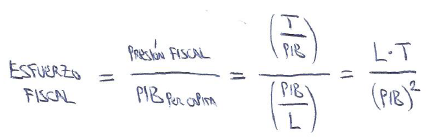 ESFUERZO FISCAL = PRESIÓN FISCAL / PIB PER CAPITA = (T / PIB) / (PIB / L) = L·T / (PIB)²